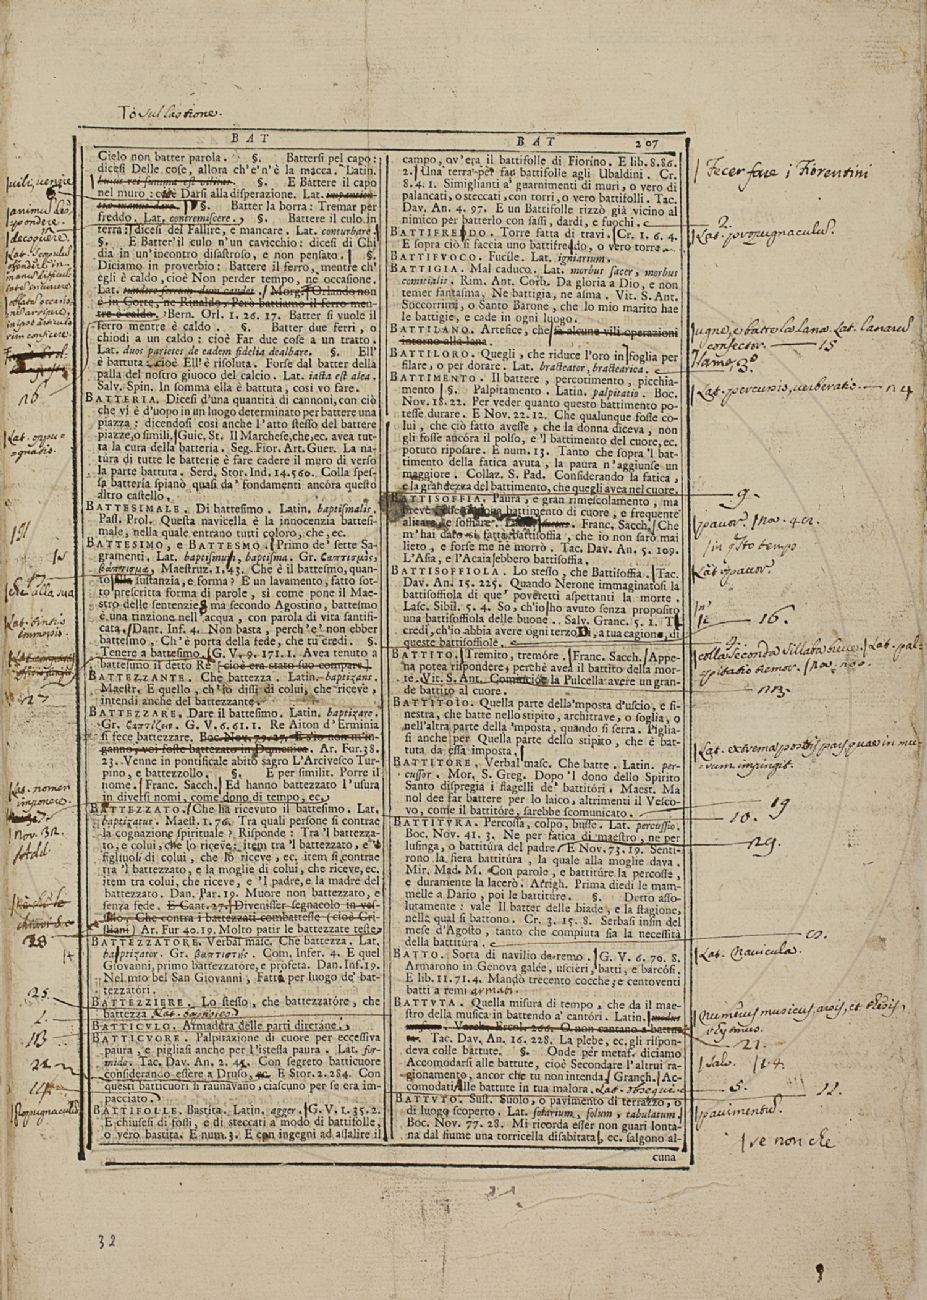 To sul lastione.
BAT
BAT 207
Cielo non batter parola. §. Battersi pel capo:
dicesi Delle cose, allora ch'e' n'è la macca. Latin.
§. E Battere il capo
nel muro: cioè Darsi alla disperazione. Lat.
§. Batter la borra: Tremar pe'l
freddo. Lat. contremiscere. §. Battere il culo in
terra: dicesi del Fallire, e mancare. Lat. conturbare.
§. E Batter il culo n'un cavicchio: dicesi di Chi
dia in un'incontro disastroso, e non pensato. §.
Diciamo in proverbio: Battere il ferro, mentre ch'
egli è caldo, cioè Non perder tempo, nè occasione.
Lat. tundere ferrum dum candet. Morg. Orlando non
è in Corte, ne Rinaldo, Però battiamo il ferro men-
tre è caldo. Bern. Orl. 1. 26. 17. Batter si vuole il
ferro mentre è caldo. §. Batter due ferri, o
chiodi a un caldo: cioè Far due cose a un tratto.
Lat. duos parietes de eadem fidelia dealbare. §. Ell'
è battuta: cioè Ell'è risoluta. Forse dal batter della
palla del nostro giuoco del calcio. Lat. iacta est alea.
Salv. Spin. In somma ella è battuta, così vo fare.
BATTERIA. Dicesi d'una quantità di cannoni, con ciò
che vi è d'uopo in un luogo determinato per battere una
piazza: dicendosi così anche l'atto stesso del battere
piazze, o simili. Guic. St. Il Marchese, che, ec. avea tut-
ta la cura della batteria. Seg. Fior. Art. Guer. La na-
tura di tutte le batterie è fare cadere il muro di verso
la parte battuta. Serd. Stor. Ind. 14. 560. Colla spes-
sa batteria spianò quasi da' fondamenti ancóra questo
altro castello.
BATTESIMALE. Di battesimo. Latin. baptismalis.
Pass. Prol. Questa navicella è la innocenzia battesi-
male, nella quale entrano tutti coloro, che, ec.
BATTESIMO, e BATTESMO. Primo de' sette Sa-
gramenti. Lat. baptismum, baptisma. Gr. βαπτισμὸς,
βάπτισμα, Maestruz. 1. 43. Che è il battesmo, quan-
to alla sustanzia, e forma? E un lavamento, fatto sot-
to prescritta forma di parole, si come pone il Mae-
stro delle sentenzie: ma secondo Agostino, battesmo
è una tinzione nell'acqua, con parola di vita santifi-
cata. Dant. Inf. 4. Non basta, perch'e' non ebber
battesmo, Ch'è porta della fede, che tu credi. §.
Tenere a battesimo. G. V. 9. 171. 1. Avea tenuto a
battesimo il detto Re [cioè era stato suo compare]
BATTEZZANTE. Che battezza. Latin. baptizans.
Maestr. E quello, ch'io dissi di colui, che riceve,
intendi anche del battezzante.
BATTEZZARE. Dare il battesimo. Latin. baptizare.
Gr. βαπτίζειν. G. V. 6. 61. 1. Re Aiton d'Erminia
si fece battezzare. Boc. Nov. 79. 27. E s'io non m'in-
ganno, voi foste battezzato in Domenica. Ar. Fur. 38.
23. Venne in pontificale abito sagro L'Arcivesco Tur-
pino, e battezzollo. §. E per similit. Porre il
nome. Franc. Sacch. Ed hanno battezzato l'usura
in diversi nomi, come dono di tempo, ec.
BATTEZZATO. Che ha ricevuto il battesimo. Lat.
baptizatus. Maest. 1. 76. Tra quali persone si contrae
la cognazione spirituale? Risponde: Tra 'l battezza-
to, e colui, che lo riceve: item tra 'l battezzato, e
figliuoli di colui, che lo riceve, ec. item si contrae
tra 'l battezzato, e la moglie di colui, che riceve, ec.
item tra colui, che riceve, e 'l padre, e la madre del
battezzato. Dan. Par. 19. Muore non battezzato, e
senza fede. E Cant. 27. Divenisser segnacolo in ves-
sillo, Che contra i battezzati combattesse (cioè Cri-
stiani) Ar. Fur 40. 19. Molto patir le battezzate teste.
BATTEZZATORE. Verbal masc. Che battezza. Lat.
baptizator. Gr. βαπτιστὴς. Com. Infer. 4. E quel
Giovanni, primo battezzatore, e profeta. Dan. Inf. 19.
Nel mio bel San Giovanni, Fatti per luogo de' bat-
tezzatóri.
BATTEZZIERE. Lo stesso, che battezzatóre, che
battezza
BATTICULO. Armadura delle parti diretane.
BATTICUORE. Palpitazione di cuore per eccessiva
paura, e pigliasi anche per l'istessa paura. Lat. for-
mido. Tac. Dav. An. 2. 45. Con segreto batticuore
considerando essere a Druso, ec. E Stor. 2. 284. Con
questi batticuori si raunavano, ciascuno per se era im-
pacciato.
BATTIFOLLE. Bastita. Latin. agger. G. V. 1. 35. 2.
E chiusesi di fossi, e di steccati a modo di battifolle,
o vero bastita. E num. 3. E con ingegni ad assalire il
campo, ov'era il battifolle di Fiorino. E lib. 8. 86.
2. Una terra per fan battifolle agli Ubaldini. Cr.
8. 4. 1. Simiglianti a' guarnimenti di muri, o vero di
palancati, o steccati, con torri, o vero battifolli. Tac.
Dav. An. 4. 97. E un Battifolle rizzò già vicino al
nimico per batterlo con sassi, dardi, e fuochi.
BATTIFREDO. Torre fatta di travi. Cr. 1. 6. 4.
E sopra ciò si faccia uno battifredo, o vero torre.
BATTIFUOCO. Fucile. Lat. igniarium.
BATTIGIA. Mal caduco. Lat. morbus sacer, morbus
comitialis. Rim. Ant. Corb. Da gloria a Dio, e non
temer fantasma, Ne battigia, ne asma. Vit. S. Ant.
Soccorrimi, o Santo Barone, che lo mio marito hae
le battigie, e cade in ogni luogo.
BATTILANO. Artefice, che fa alcune vili operazioni
intorno alla lana.
BATTILORO. Quegli, che riduce l'oro in foglia per
filare, o per dorare. Lat. bracteator, bractearica.
BATTIMENTO. Il battere, percotimento, picchia-
mento. §. Palpitamento. Latin. palpitatio. Boc.
Nov. 18. 22. Per veder quanto questo battimento po-
tesse durare. E Nov. 22. 12. Che qualunque fosse co-
lui, che ciò fatto avesse, che la donna diceva, non
gli fosse ancóra il polso, e 'l battimento del cuore, ec.
potuto riposare. E num. 13. Tanto che sopra 'l bat-
timento della fatica avuta, la paura n'aggiunse un
maggiore. Collaz. S. Pad. Considerando la fatica,
e la grandezza del battimento, che quegli avea nel cuore.
BATTISOFFIA. Paura, e gran rimescolamento, ma
breve battimento di cuore, e frequente
alitare, e soffiare. Franc. Sacch. Che
m'hai dato sì fatta battisoffia, che io non sarò mai
lieto, e forse me ne morrò. Tac. Dav. An. 5. 109.
L'Asia, e l'Acaia ebbero battisoffia.
BATTISOFFIOLA. Lo stesso, che Battisoffia. Tac.
Dav. An. 15. 225. Quando Nerone immaginatosi la
battisoffiola di que' poveretti aspettanti la morte.
Lasc. Sibil. 5. 4. So, ch'io ho avuto senza proposito
una battisoffiola delle buone. Salv. Granc. 5. 1. T
credi, ch'io abbia avere ogni terzo Di, a tua cagione, di
queste battisoffiole.
BATTITO. Tremito, tremóre. Franc. Sacch. Appe-
na potea rispondere, perchè avea il battito della mor-
te. Vit. S. Ant. Cominciòe la Pulcella avere un gran-
de battito al cuore.
BATTITOIO. Quella parte della 'mposta d'uscio, e fi-
nestra, che batte nello stipito, architrave, o soglia, o
nell'altra parte della 'mposta, quando si serra. Piglia-
si anche per Quella parte dello stipito, che è bat-
tuta da essa imposta.
BATTITORE. Verbal masc. Che batte. Latin. per-
cussor. Mor. S. Greg. Dopo 'l dono dello Spirito
Santo dispregia i flagelli de' battitóri. Maest. Ma
nol dee far battere per lo laico, altrimenti il Vesco-
vo, come il battitóre, sarebbe scomunicato.
BATTITURA. Percossa, colpo, busse. Lat. percussio.
Boc. Nov. 41. 3. Ne per fatica di maestro, ne per
lusinga, o battitúra del padre. E Nov. 73. 19. Senti-
rono la fiera battitúra, la quale alla moglie dava.
Mir. Mad. M. Con parole, e battitúre la percosse,
e duramente la lacerò. Arrigh. Prima diedi le mam-
melle a Dario, poi le battitúre. §. Detto asso-
lutamente: vale Il batter delle biade, e la stagione,
nella qual si battono. Cr. 3. 15. 8. Serbasi insin del
mese d'Agosto, tanto che compiuta sia la necessità
della battitúra.
BATTO. Sorta di navilio da remo. G. V. 6. 70. 8.
Armarono in Genova galée, uscieri, batti, e barcósi.
E lib. 11. 71. 4. Mando trecento cocche, e centoventi
batti a remi armati.
BATTUTA. Quella misura di tempo, che da il mae-
stro della musica in battendo a' cantóri. Latin.
Varch. Ercol. 266. O non cantano a battu-
ta. Tac. Dav. An. 16. 228. La plebe, ec. gli rispon-
deva colle battute. §. Onde per metaf. diciamo
Accomodarsi alle battute, cioè Secondare l'altrui ra-
gionamento, ancor che tu non intenda. Granch. Ac-
comodati alle battute in tua malora. Lat. obsequere
BATTUTO. Sust. Suolo, o pavimento di terrazzo, o
di luogo scoperto. Lat. solarium, solum, tabulatum.
Boc. Nov. 77. 28. Mi ricorda esser non guari lonta-
na dal fiume una torricella disabitata, ec. salgono al-
cuna
Fecer fare i Fiorentini
Lat. propugnaculũ.
15
9.
paurr. nov. 42.
in q̃sto tempo
Lat. pavor.
16.
colla seconda sillaba breve. Lat. pal-
pitatio
19
10.
29.
Lat. Navicula.
Numerus musicus, arsis, et thesis,
rhytmus.
21.
5.
12.
pavimentũ.
se non che
Lat. nomen
imponere
Nov. 32.
28
25.
2.
113
22
Propugnaculũ
32